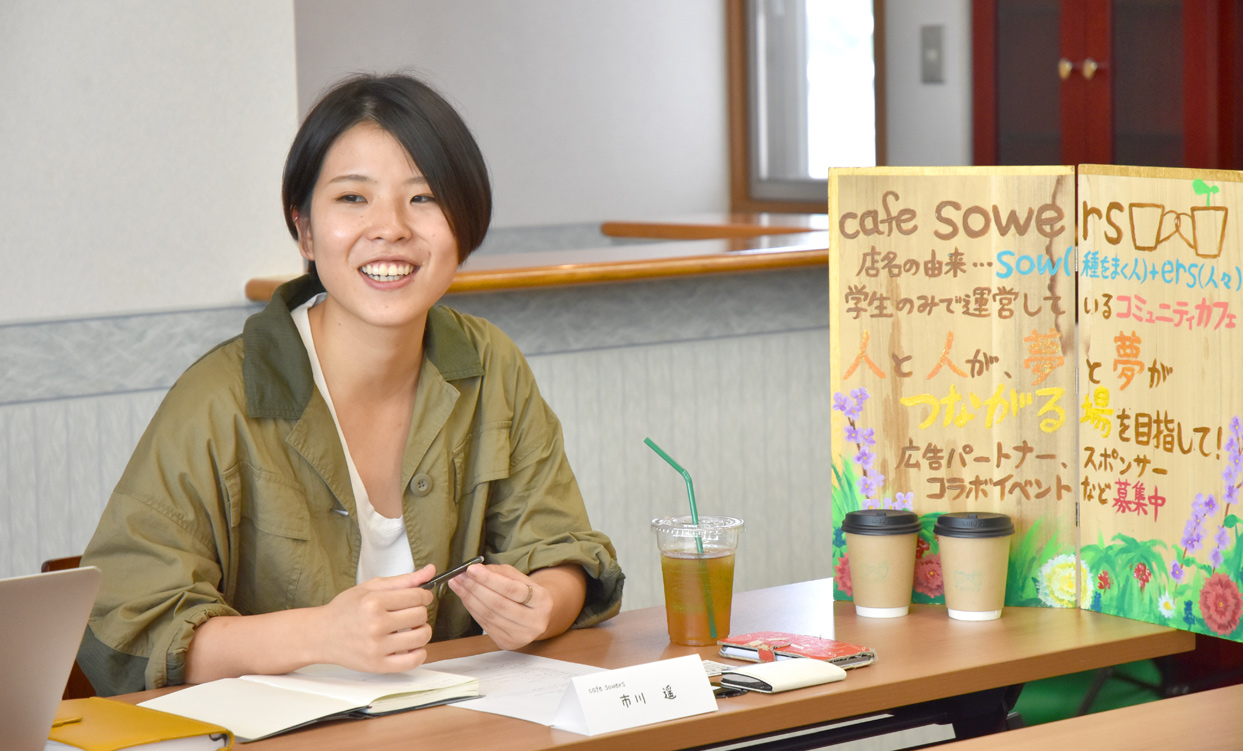 cafe sowers
店名の由来…sow(種をまく人)+ers(人々)
学生のみで運営しているコミュニティカフェ
人と人が、夢と夢が
つながる場を目指して!
広告パートナー、スポンサー
コラボイベントなど募集中
cafe sowers
市川 遥